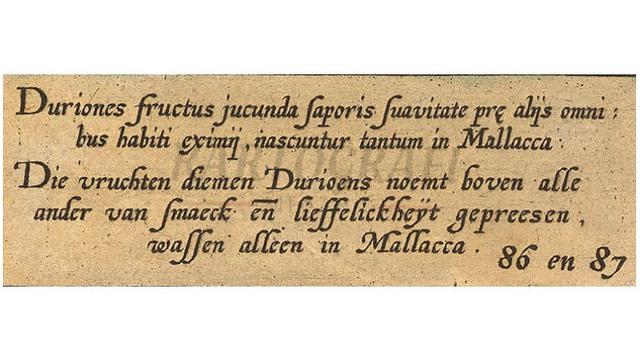 Duriones fructus jucunda saporis suavitate prę alijs omni:
bus habiti eximij, nascuntur tantum in Mallacca.
Die vruchten diemen Durioens noemt boven alle
ander van smaeck eñ lieffelickheÿt gepreesen,
wassen alleen in Mallacca. 86 en 87